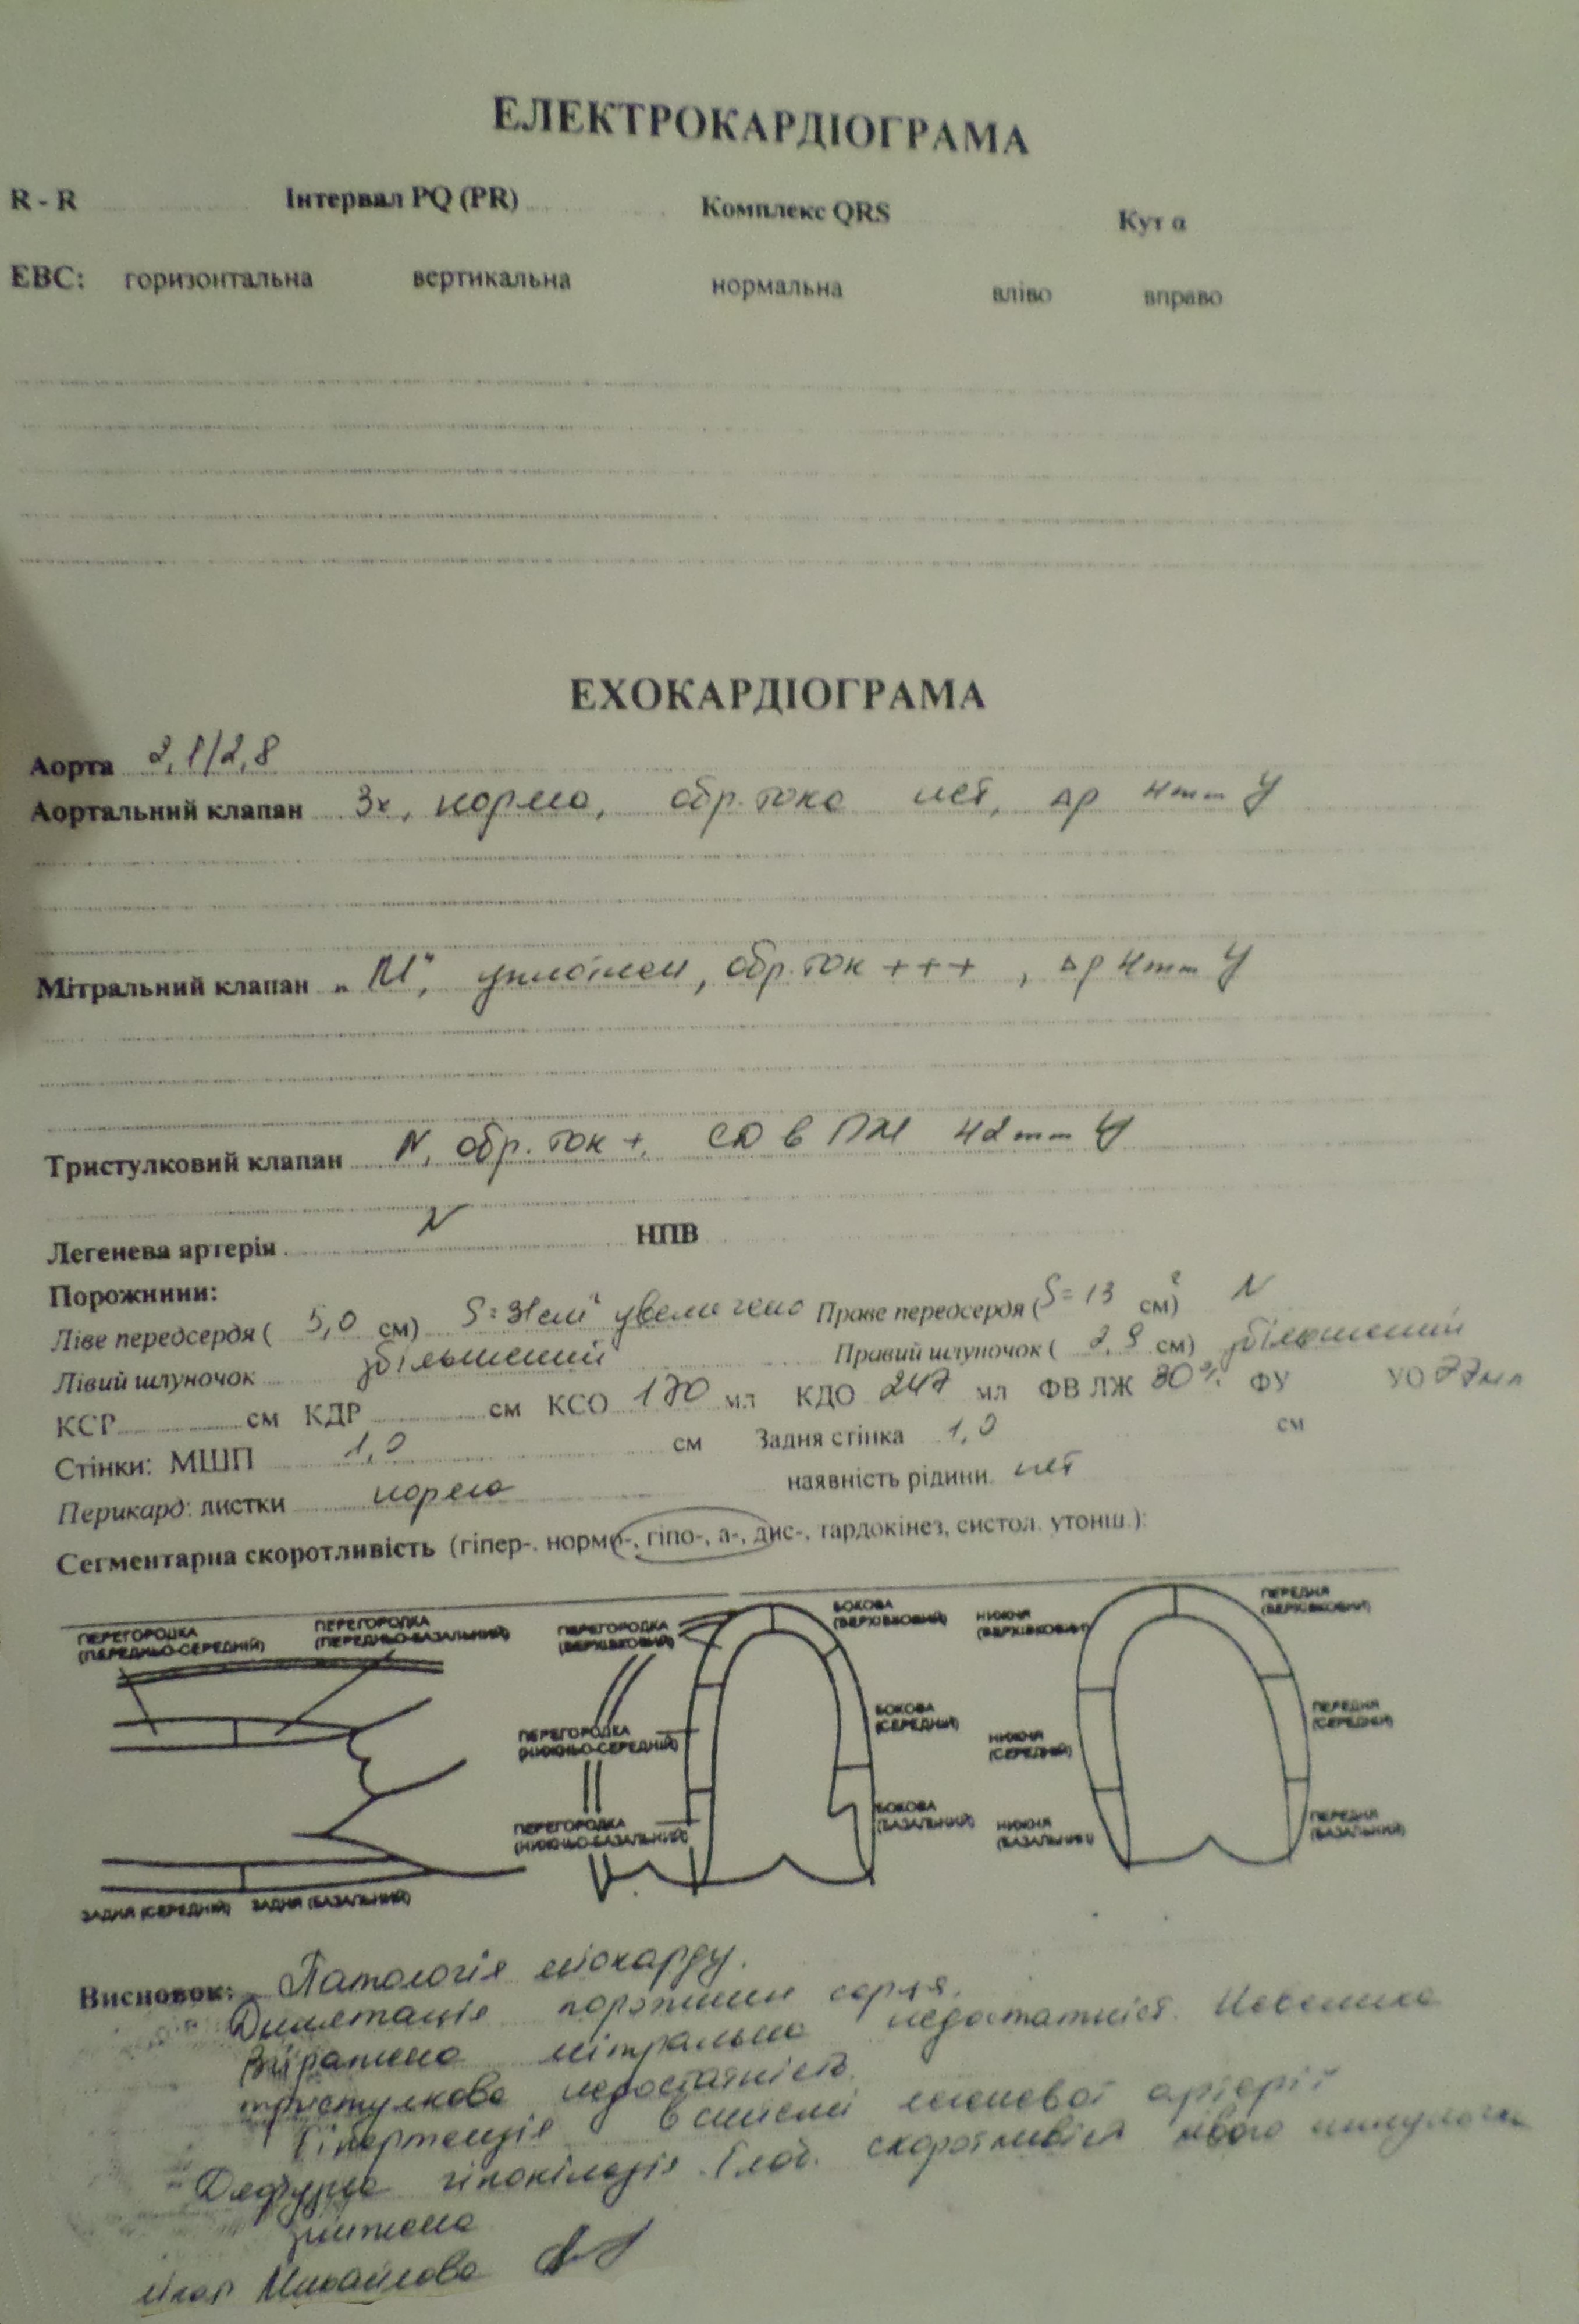 ЕЛЕКТРОКАРДІОГРАМА
R - R Інтервал PQ (PR) Комплекс QRS Кут α
ЕВС: горизонтальна вертикальна нормальна вліво вправо
ЕХОКАРДІОГРАМА
Аорта 2,1/2,8
Аортальний клапан 3х, норма, обр. тока нет, Δр 4mm
Мітральний клапан „М", уплотнен, обр. ток +++, Δр 4mm
Тристулковий клапан N, обр. ток +, СД в ПЖ 42mm
Легенева артерія N НПВ
Порожнини:
Ліве передсердя ( 5,0 см) S = 31 см² увеличено Праве передсердя ( S = 13 см²) N
Лівий шлуночок збільшений Правий шлуночок ( 2,9 см) збільшений
КСР см КДР см КСО 170 мл КДО 247 мл ФВ ЛЖ 30% ФУ УО 77мл
Стінки: МШП 1,0 см Задня стінка 1,0 см
Перикард: листки норма наявність рідини. нет
Сегментарна скоротливість (гіпер-, нормо-, гіпо-, а-, дис-, гардокінез, систол. утонш.):
ПЕРЕГОРОДКА (ПЕРЕДНЬО-СЕРЕДНІЙ)
ПЕРЕГОРОДКА (ПЕРЕДНЬО-БАЗАЛЬНИЙ)
ЗАДНЯ (СЕРЕДНІЙ) ЗАДНЯ (БАЗАЛЬНИЙ)
ПЕРЕГОРОДКА (ВЕРХІВКОВИЙ)
ПЕРЕГОРОДКА (НИЖНЬО-СЕРЕДНІЙ)
ПЕРЕГОРОДКА (НИЖНЬО-БАЗАЛЬНИЙ)
БОКОВА (ВЕРХІВКОВИЙ)
БОКОВА (СЕРЕДНІЙ)
БОКОВА (БАЗАЛЬНИЙ)
НИЖНЯ (ВЕРХІВКОВИЙ)
НИЖНЯ (СЕРЕДНІЙ)
НИЖНЯ (БАЗАЛЬНИЙ)
ПЕРЕДНЯ (ВЕРХІВКОВИЙ)
ПЕРЕДНЯ (СЕРЕДНІЙ)
ПЕРЕДНЯ (БАЗАЛЬНИЙ)
Висновок: Патологія міокарду.
Дилятація порожнин серця.
Виражена мітральна недостатність. Невелика
тристулкова недостатність.
Гіпертензія в системі легеневої артерії
Дифузна гіпокінезія. Глоб. скоротливість лівого шлуночка
знижена
лікар Михайлова